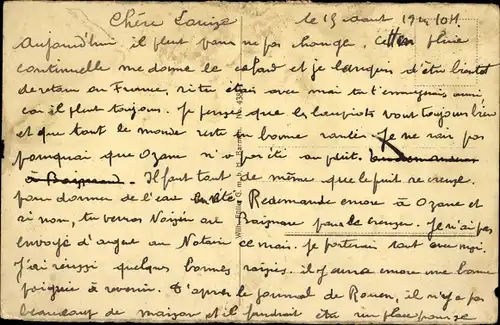 Chère Louise le 15 aout 19
Aujourd'hui il pleut pour ne pas changer, cette pluie
continuelle me donne le cafard et je languis d'être bientot
de retour en France, si tu étais avec moi tu t'ennuyerais aussi
car il pleut toujours. Je pense que les loupiots vont toujours bien
et que tout le monde reste en bonne santée. Je ne sais pas
pourquoi que Ozane n'a pas été au puit.
à Baignard. Il faut tant de même que le puit se creuse
pour donner de l'eau en été. Redemande encore à Ozane et
si non, tu verras Voisin ou Baignard pour le creuser. Je n'ai pas
envoyé d'argent au Notaire ce mois. Je porterai tout avec moi.
J'ai réussi quelques bonnes il y aura encore une bonne
poignée à revenir. D'après le journal de Rouen, il n'y a pas
beaucoup de maison et il faudrait être sur place pour se